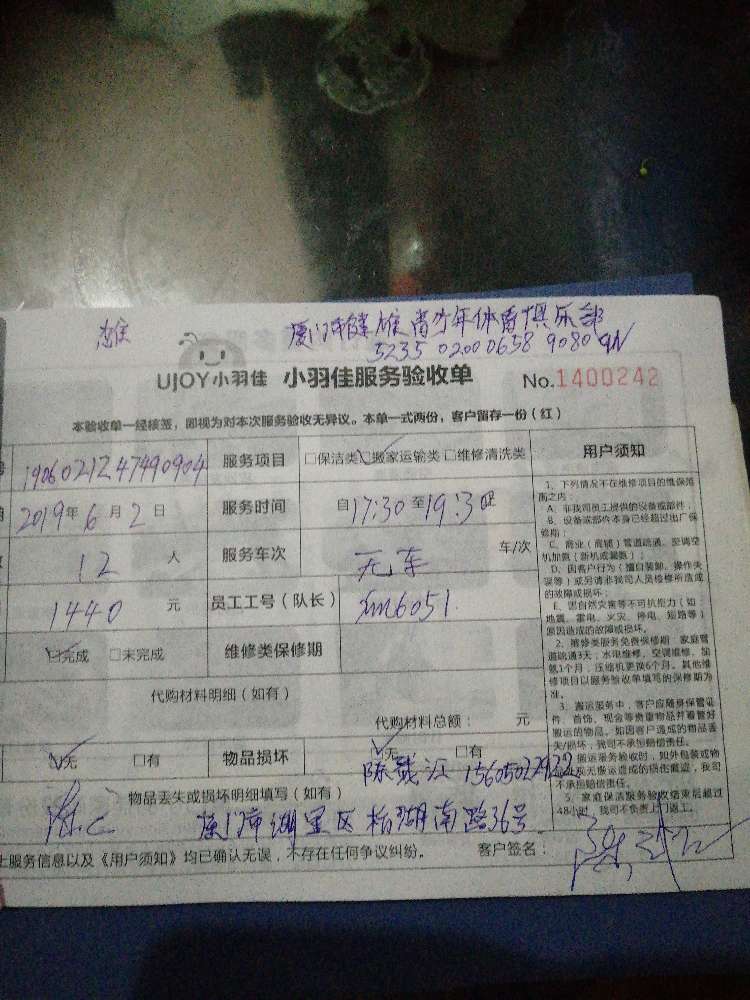 雄 厦门市健雄青少年体育俱乐部
5235 0200 0658 9080
UJOY小羽佳 小羽佳服务验收单 No.1400242
本验收单一经核签，即视为对本次服务验收无异议。本单一式两份，客户留存一份（红）
1906021247490904 服务项目 □保洁类 ☑搬家运输类 □维修清洗类 用户须知
2019年6月2日 服务时间 自17:30至19:30
12 人 服务车次 无车 车/次
1440 元 员工工号（队长） xm6051
☑完成 □未完成 维修类保修期
代购材料明细（如有）
代购材料总额： 元
☑无 □有 物品损坏 ☑无 □有
江
物品丢失或损坏明细填写（如有）
厦门市湖里区枋湖南路36号
上服务信息以及《用户须知》均已确认无误，不存在任何争议纠纷。 客户签名：
1、下列情况不在维修项目的维保范
围之内：
A、非我司员工提供的设备或部件；
B、设备或部件本身已经超过出厂保
修期；
C、商业（商铺）管道疏通、空调空
机加氨（新机或漏氨）；
D、因客户行为（擅自装卸、操作失
误等）或另请非我司人员检修所造成
的故障或损坏；
E、因自然灾害等不可抗能力（如：
地震、雷电、火灾、停电、短路等）
原因造成的故障或损坏。
2、维修类服务免费保修期：家庭管
道疏通3天，水电维修、空调维修、加
氨1个月，压缩机更换6个月。其他维
修项目以服务验收单填写的保修期为
准。
3、搬运服务中，客户应随身保管证
件、首饰、现金等贵重物品并看管好
搬运的物品。如因客户造成的物品丢
失/损坏，我司不承担赔偿责任。
搬运服务验收时，如外包装或物
现无搬运造成的损伤痕迹，我司
不承担赔偿责任。
5、家庭保洁服务验收结束后超过
48小时，我司不负责上门返工。